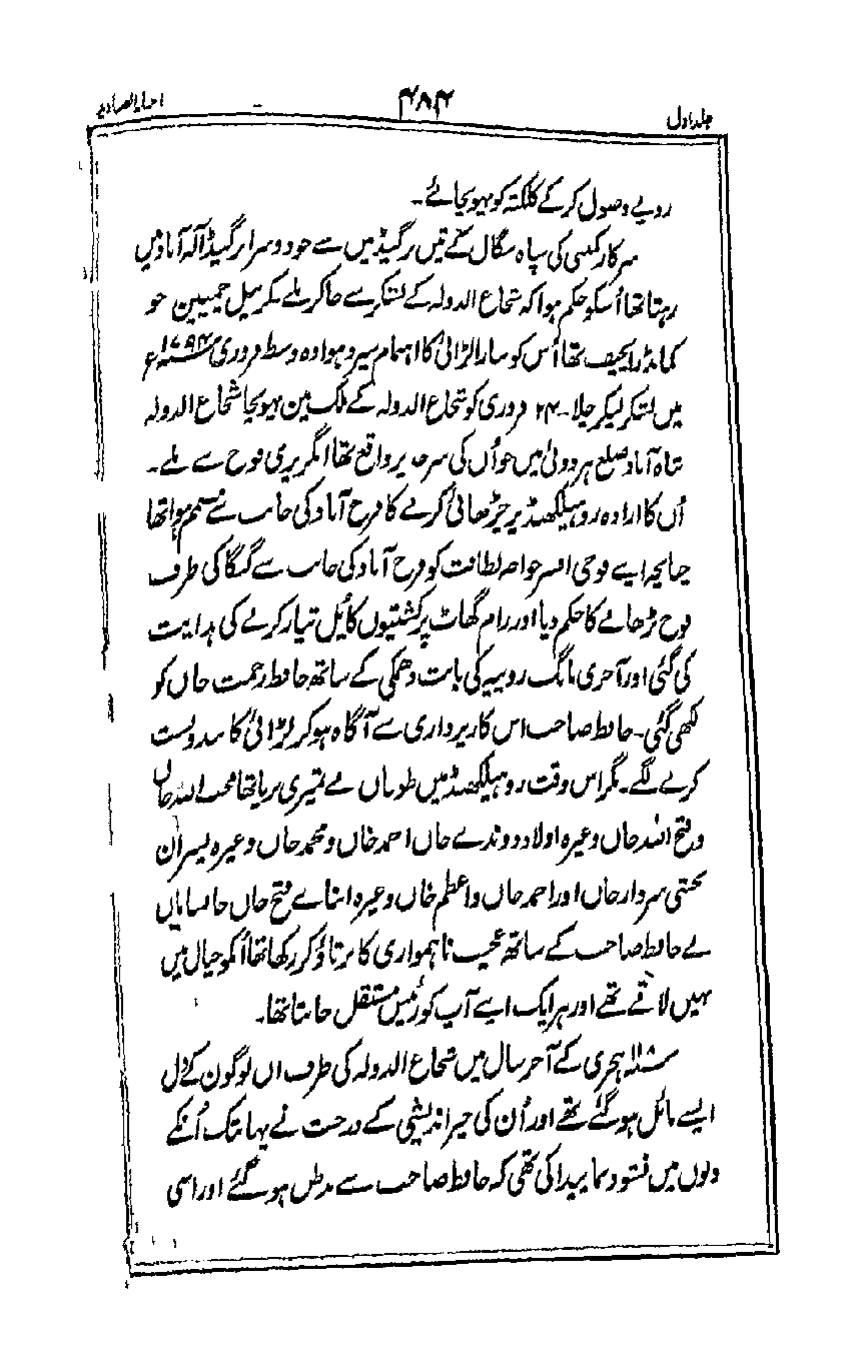 جلد اول
۴۸۴
اخبار الصنادید
روپے وصول کرکے کلکتہ کو پہونچائے۔
سرکار کمپنی کی سپاہ بنگال کے تین رگیڈ میں سے جو دوسرا رگیڈ آلہ آباد میں
رہتا تھا اُسکو حکم ہوا کہ شجاع الدولہ کے لشکر سے جاکر ملے کرنیل چیمپین جو
کمانڈر انچیف تھا اُس کو سارا لڑائی کا اہتمام سپرد ہوا وہ وسط فروری ۱۷۷۴ء
میں لشکر لیکر چلا۔ ۲۴ فروری کو شجاع الدولہ کے ملک مین پہونچا شجاع الدولہ
شاہ آباد ضلع ہردوئی میں جو اُن کی سرحد پر واقع تھا انگریزی فوج سے ملے۔
اُن کا ارادہ روہیلکھنڈ پر چڑھائی کرنے کا فرخ آباد کی جانب سے مصمم ہوا تھا
چنانچہ اپنے فوجی افسر خواجہ لطافت کو فرخ آباد کی جانب سے گنگا کی طرف
فوج بڑھانے کا حکم دیا اور رام گھاٹ پر کشتیوں کا پُل تیار کرنے کی ہدایت
کی گئی اور آخری مانگ روپیہ کی بابت دھمکی کے ساتھ حافظ رحمت خاں کو
لکھی گئی۔ حافظ صاحب اس کارپردازی سے آگاہ ہوکر لڑائی کا بندوبست
کرنے لگے۔ مگر اس وقت روہیلکھنڈ میں طوفان بے تمیزی برپا تھا محب اللہ خاں
و فتح اللہ خاں وغیرہ اولاد دوندے خاں احمد خاں و محمد خاں وغیرہ پسران
بخشی سردار خاں اور احمد خاں و اعظم خاں وغیرہ ابنائے فتح خاں خانساماں
نے حافظ صاحب کے ساتھ عجب ناہمواری کا برتاؤ کر رکھا تھا اُنکو خیال میں
نہیں لاتے تھے اور ہر ایک اپنے آپ کو رئیس مستقل جانتا تھا۔
ہجری کے آخر سال میں شجاع الدولہ کی طرف ان لوگون کے دل
ایسے مائل ہوگئے تھے اور اُن کی خیر اندیشی کے درخت نے یہانتک اُنکے
دلوں میں نشوونما پیدا کی تھی کہ حافظ صاحب سے بدظن ہوگئے اور اسی